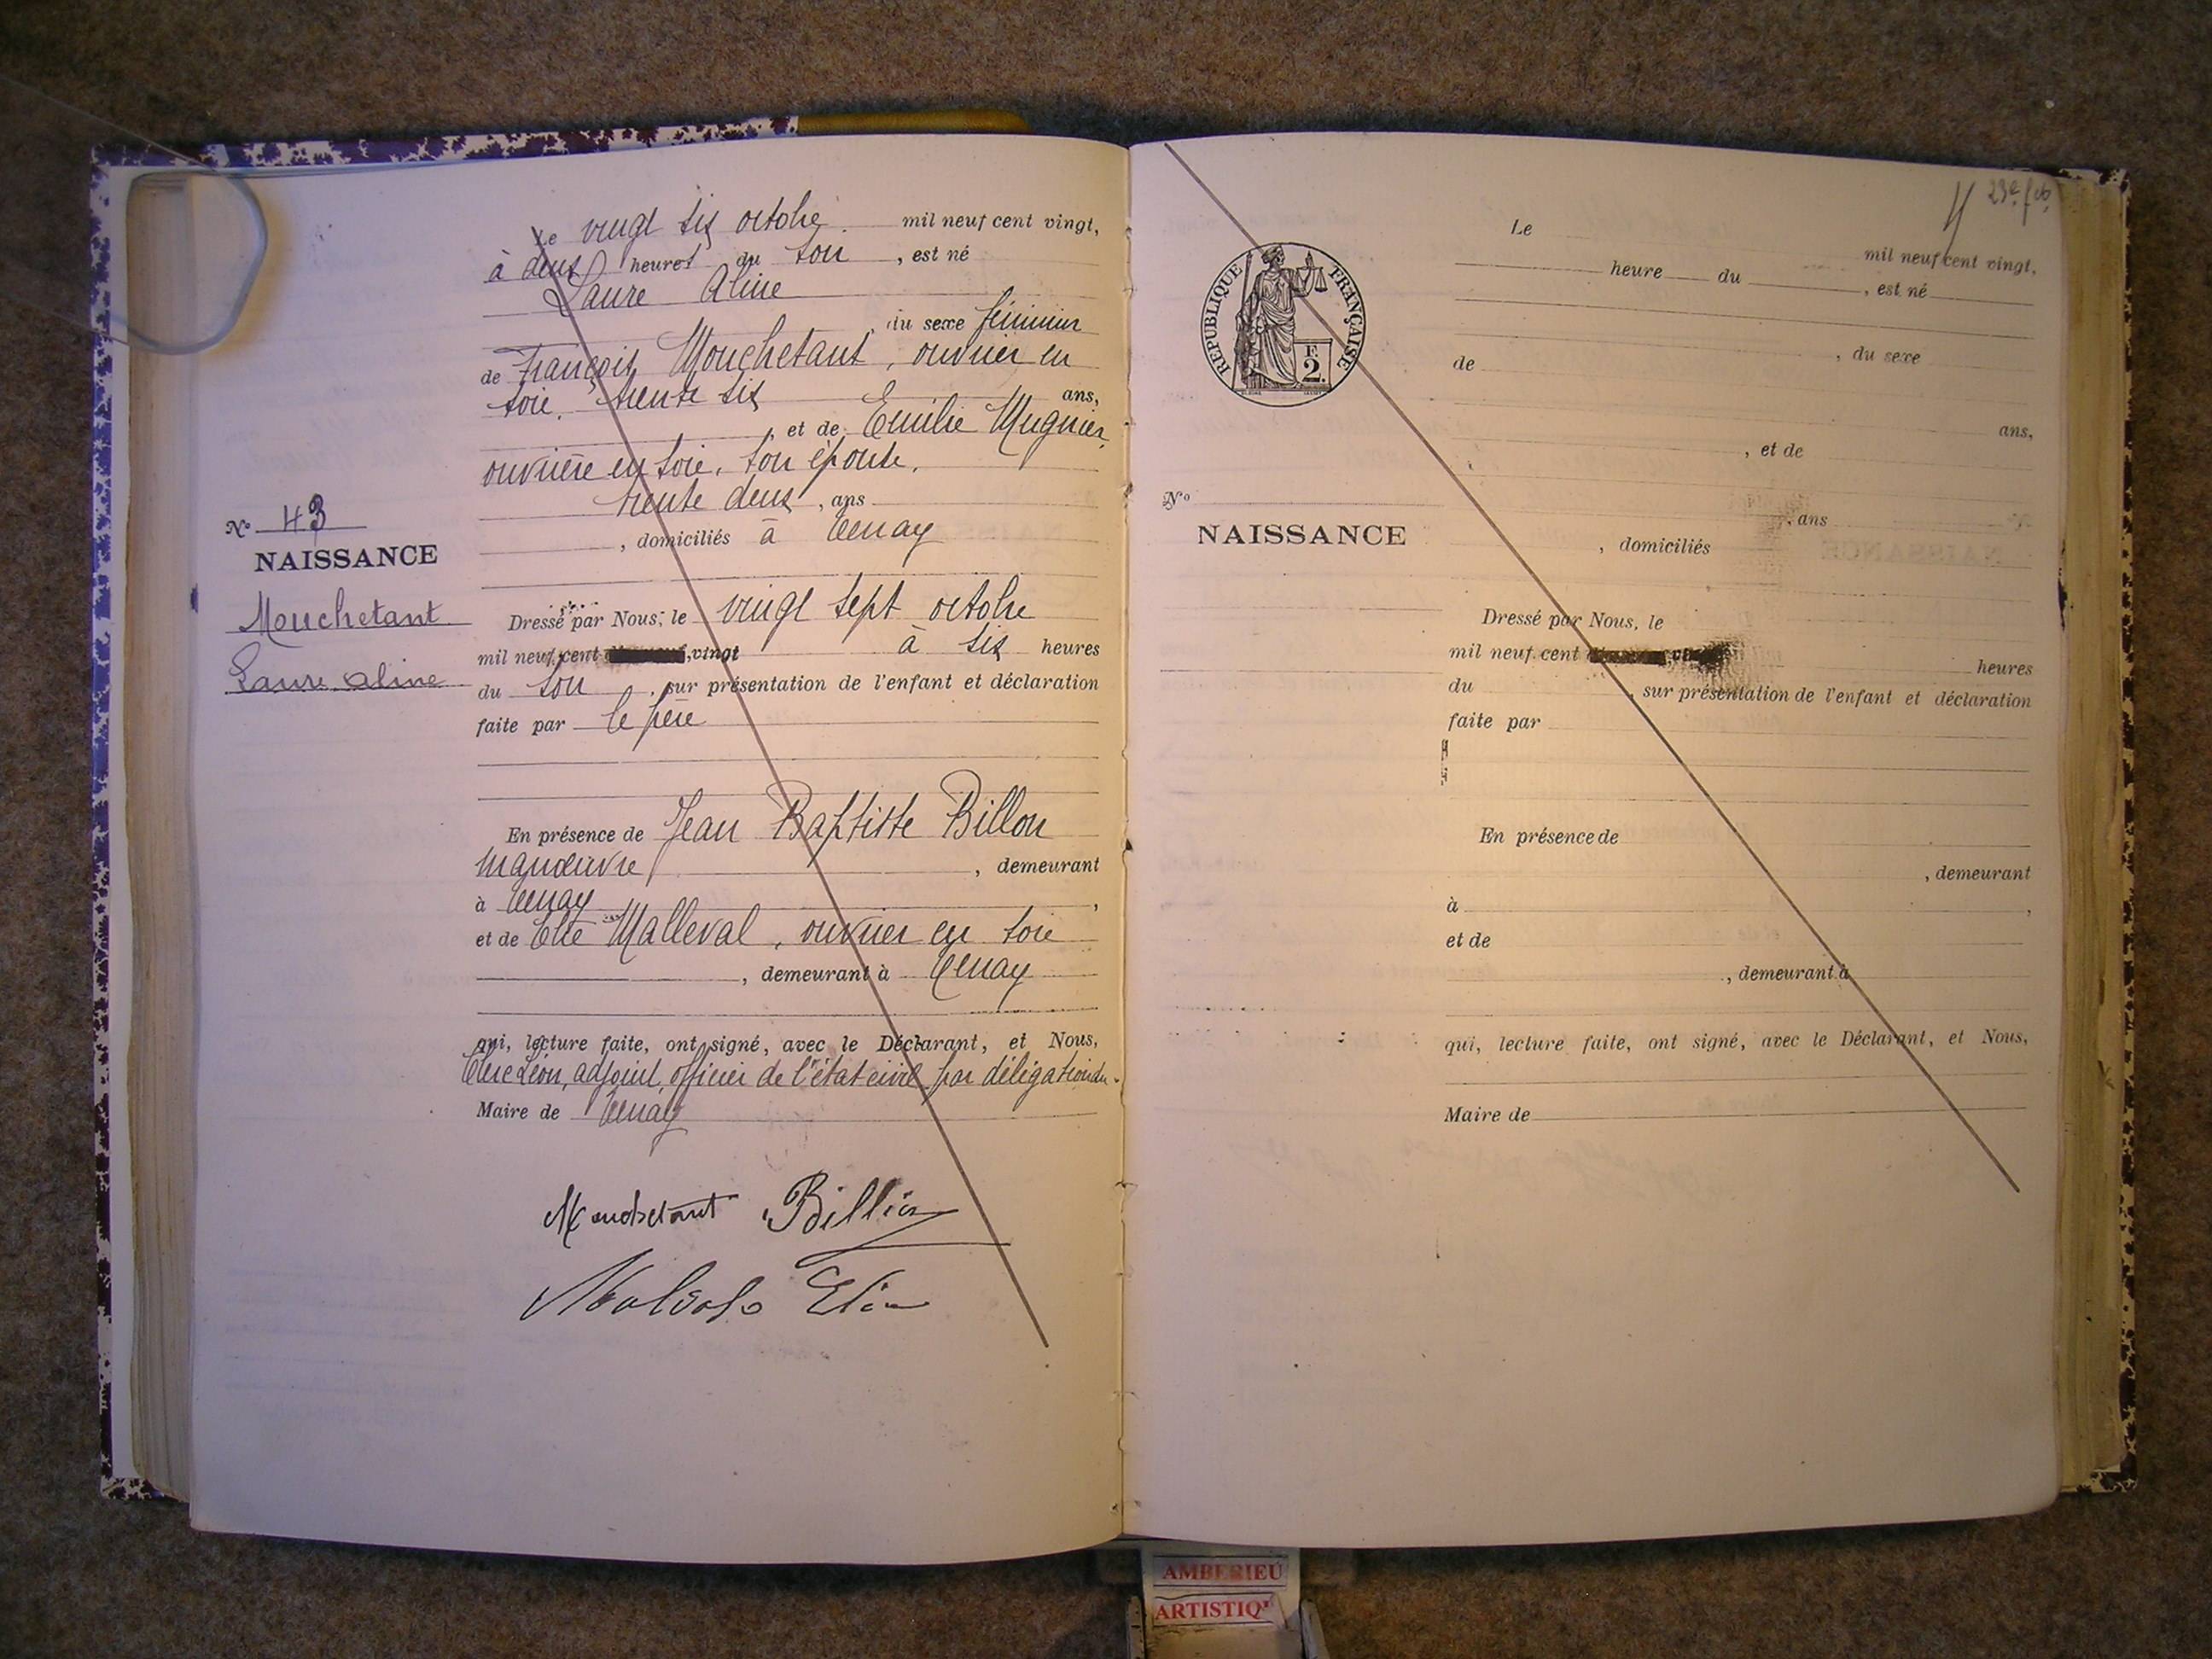 Le vingt six octobre mil neuf cent vingt,
à deux heures du soir, est né
Laure Aline
, du sexe féminin
de François Mouchetant, ouvrier en
soie, trente six ans,
, et de Emilie Mugnier,
ouvrière en soie, son épouse,
trente deux, ans
, domiciliés à Tenay
N° 43
NAISSANCE
Mouchetant
Laure Aline
Dressé par Nous, le vingt sept octobre
mil neuf cent ,vingt à six heures
du soir, sur présentation de l'enfant et déclaration
faite par le père
En présence de Jean Baptiste Billon
manœuvre, demeurant
à Tenay,
et de Elie Malleval, ouvrier en soie
, demeurant à Tenay
qui, lecture faite, ont signé, avec le Déclarant, et Nous,
Léon, adjoint, officier de l'état civil par délégation du
Maire de Tenay
Mouchetant Billon
Elie
23e fo
Le mil neuf cent vingt,
heure du , est né
RÉPUBLIQUE FRANÇAISE
F
2.
, du sexe
de
ans,
, et de
, ans
, domiciliés
N°
NAISSANCE
Dressé par Nous, le
mil neuf cent
heures
du , sur présentation de l'enfant et déclaration
faite par
En présence de
, demeurant
à ,
et de
, demeurant à
qui, lecture faite, ont signé, avec le Déclarant, et Nous,
Maire de
AMBERIEU
ARTISTIQ